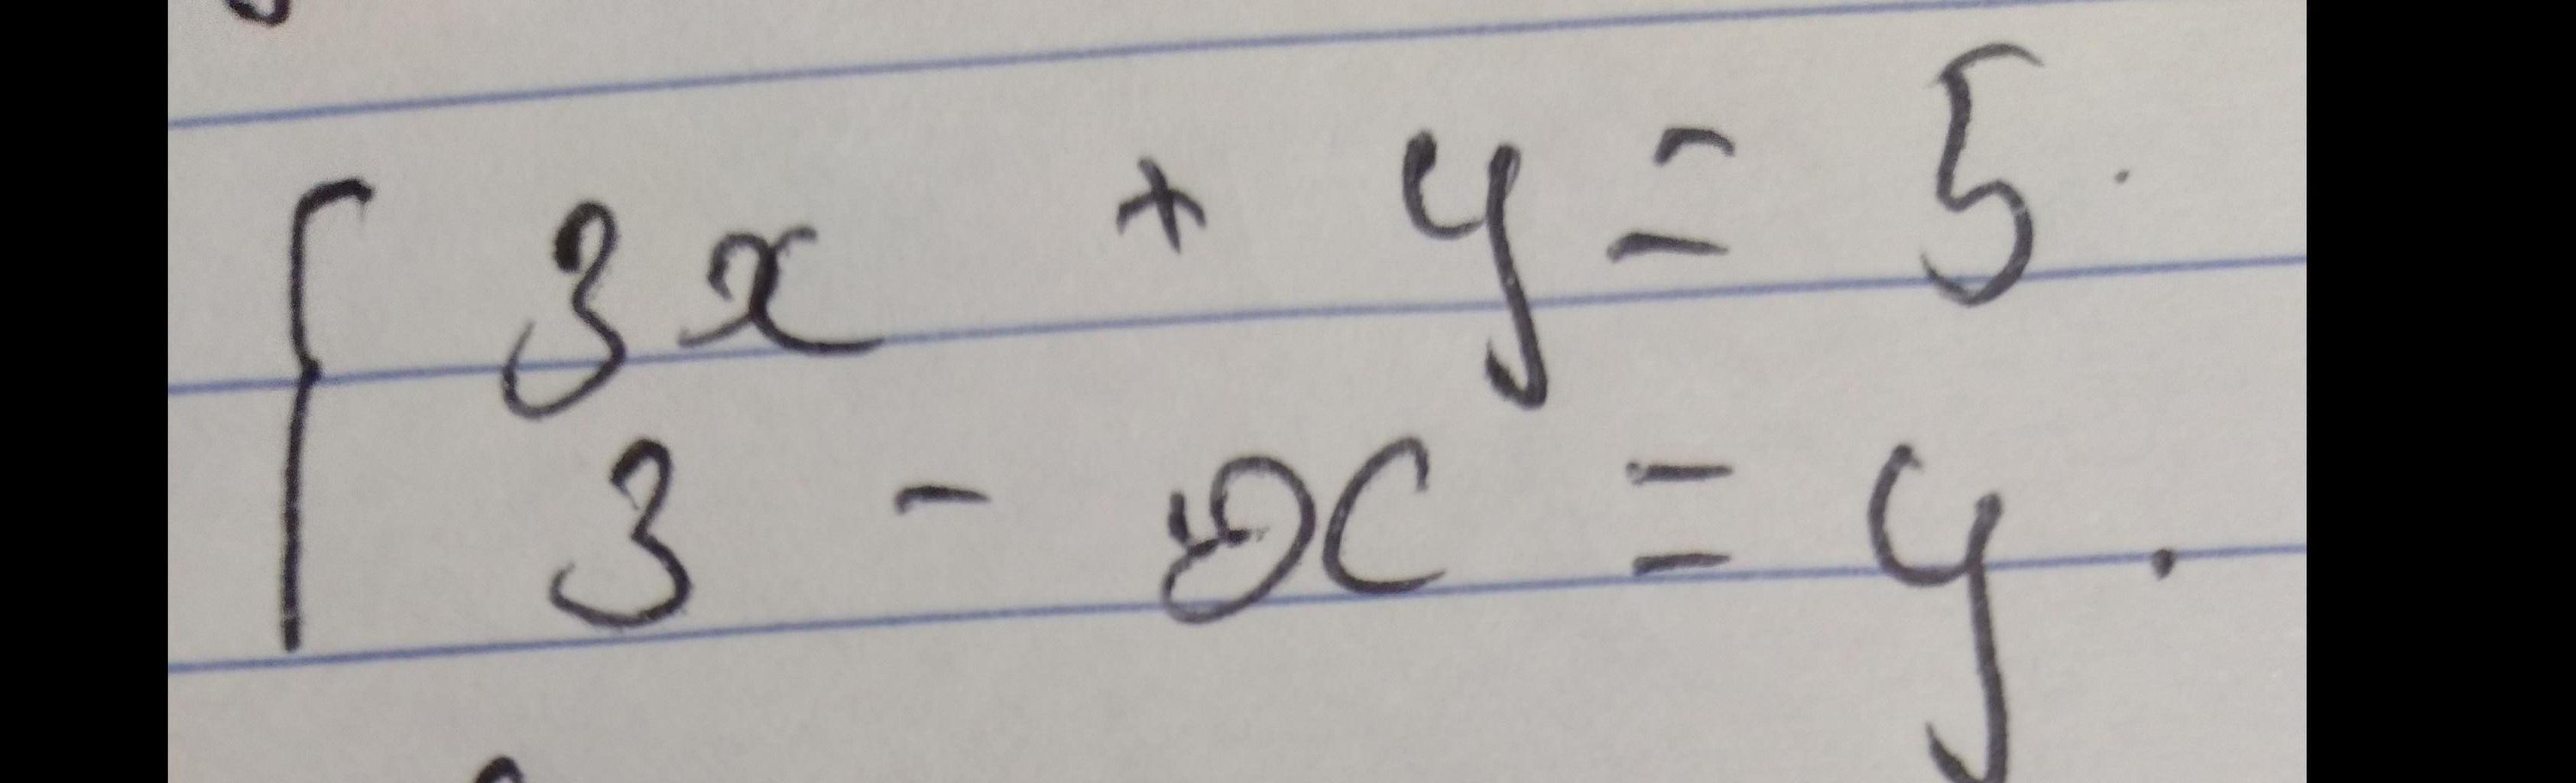 3x + y = 5.
3 - x = y.